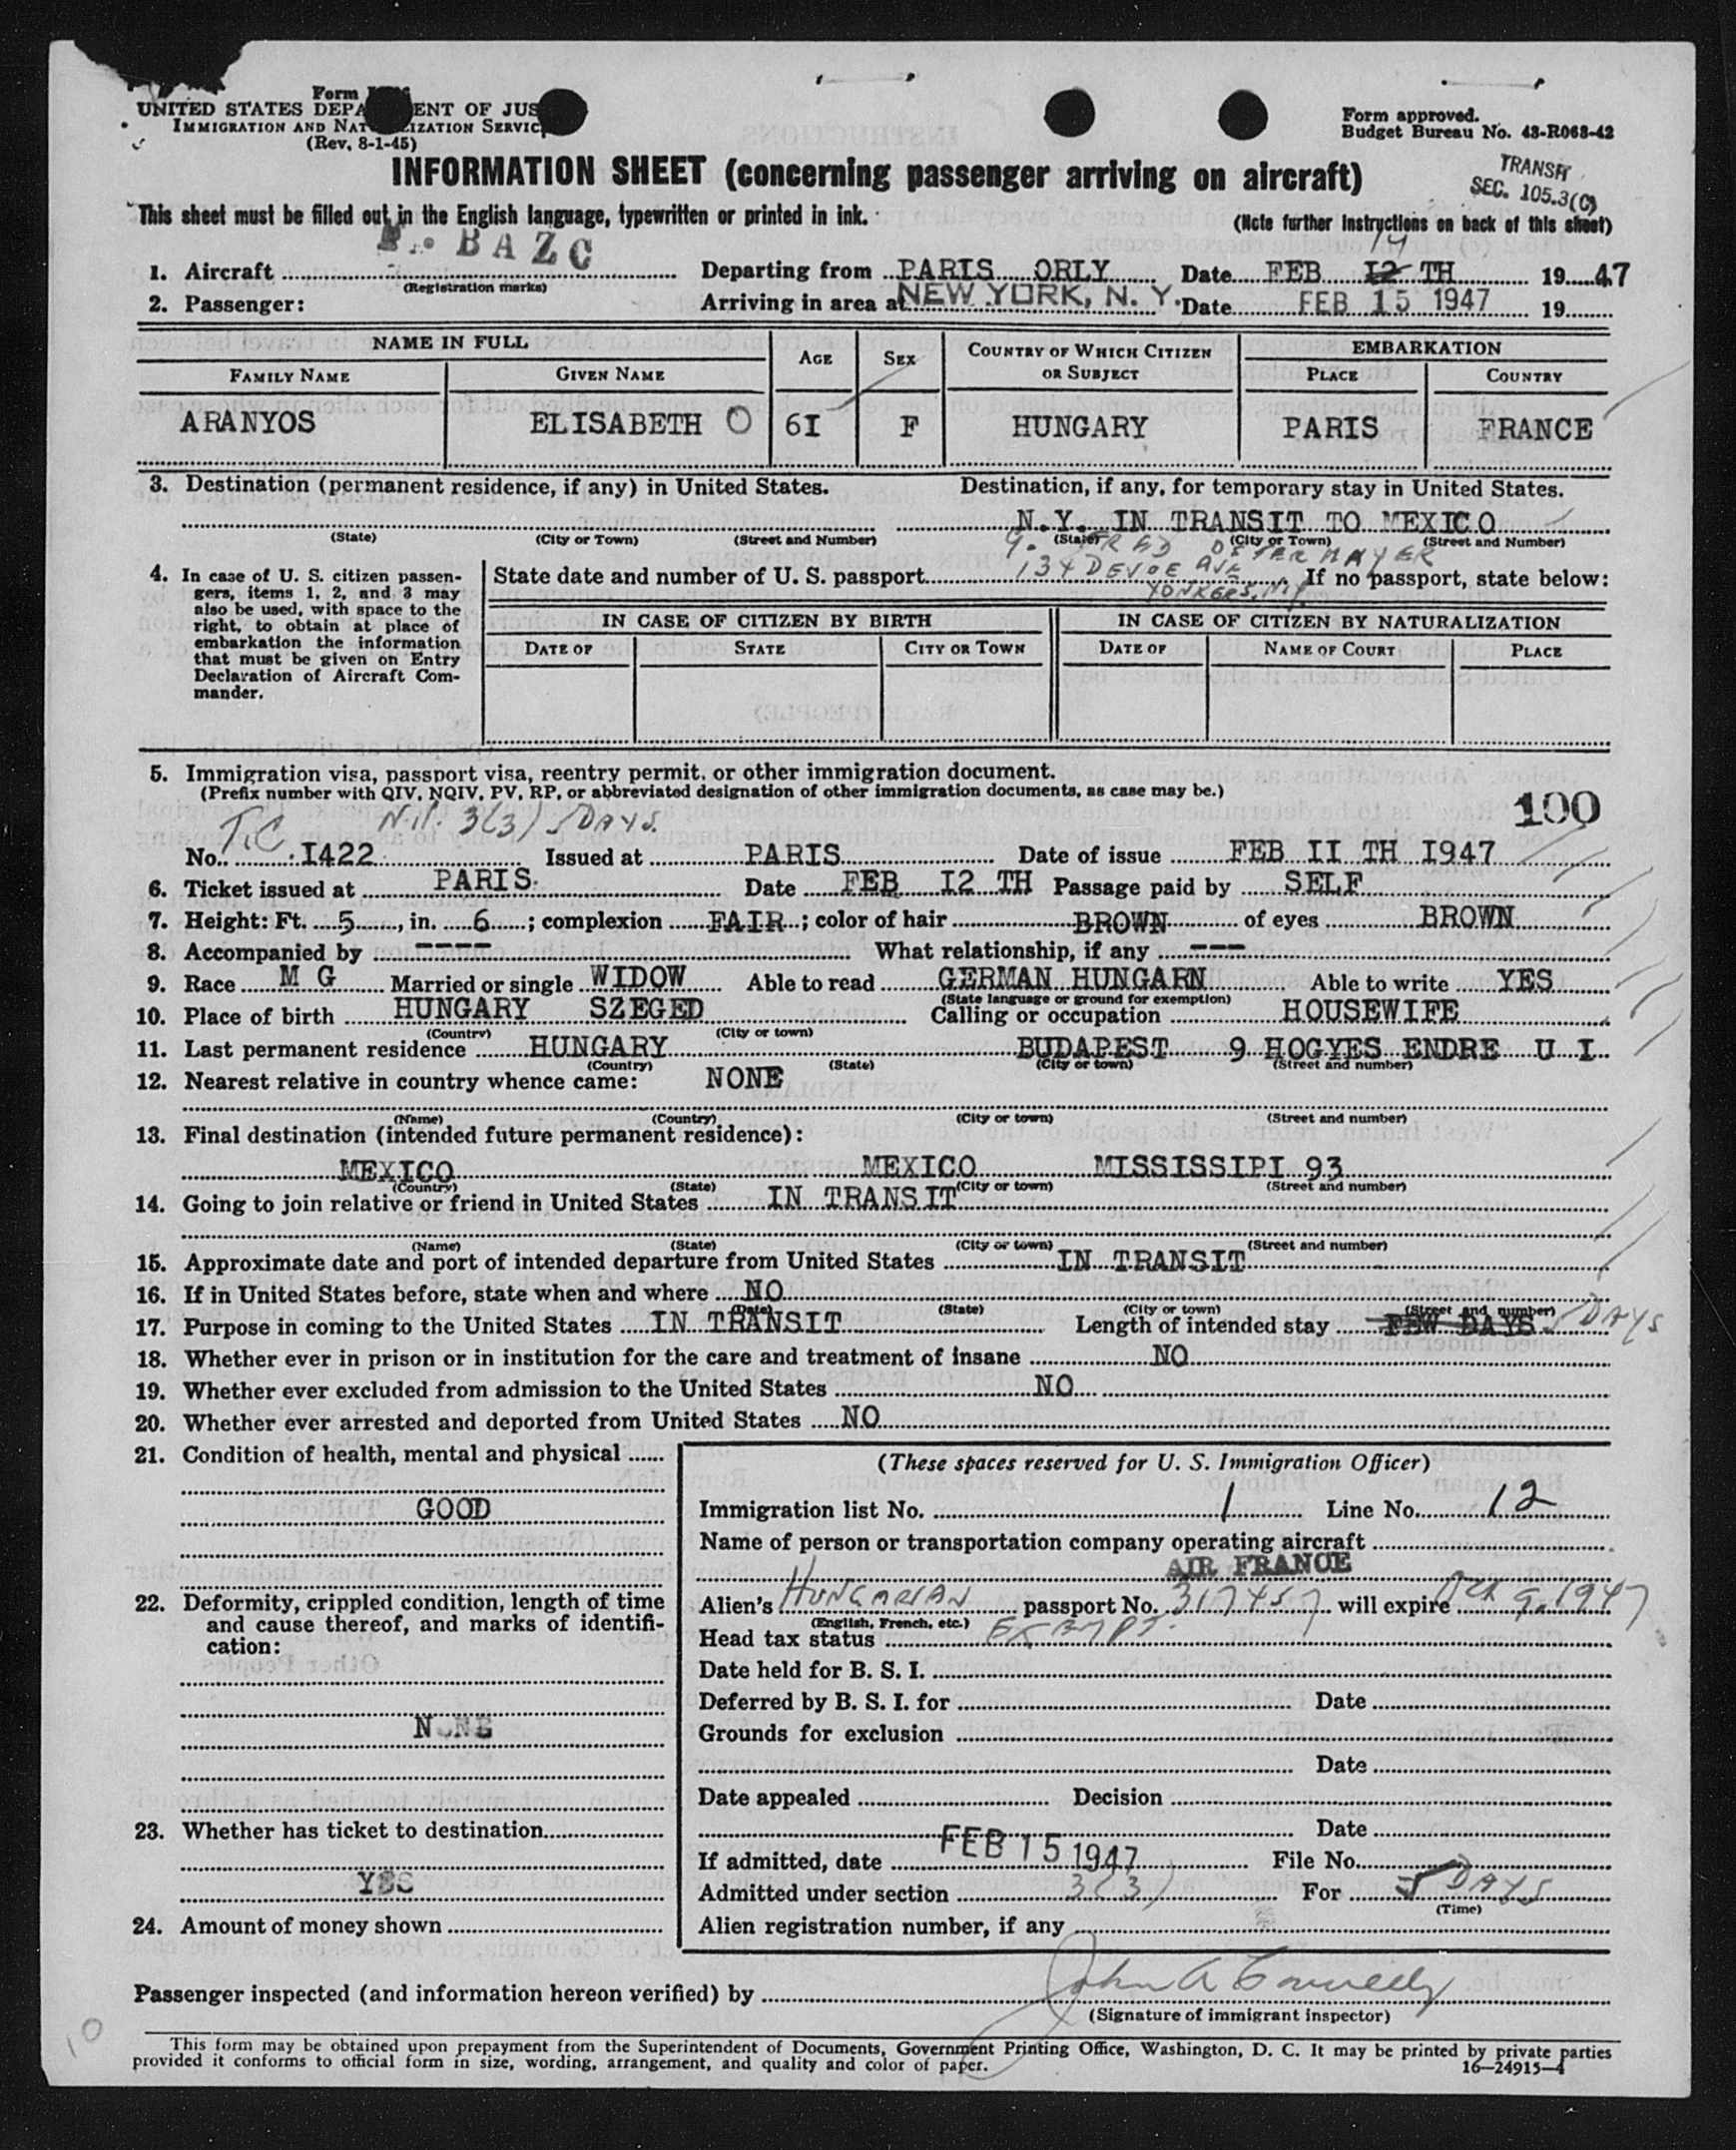 Form
UNITED STATES DEPA ENT OF JUS
IMMIGRATION AND NAT IZATION SERVIC
(Rev. 8-1-45)
Form approved.
Budget Bureau No. 43-R063-42
INFORMATION SHEET (concerning passenger arriving on aircraft)
TRANSIT
SEC. 105.3(C)
This sheet must be filled out in the English language, typewritten or printed in ink.
(Note further instructions on back of this sheet)
1. Aircraft BAZC Departing from PARIS ORLY Date FEB 12 14 TH 19 47
(Registration marks)
2. Passenger: Arriving in area at NEW YORK, N. Y. Date FEB 15 1947 19
NAME IN FULL AGE SEX COUNTRY OF WHICH CITIZEN OR SUBJECT EMBARKATION
FAMILY NAME GIVEN NAME PLACE COUNTRY
ARANYOS ELISABETH O 6I F HUNGARY PARIS FRANCE
3. Destination (permanent residence, if any) in United States. Destination, if any, for temporary stay in United States.
N.Y. IN TRANSIT TO MEXICO
(State) (City or Town) (Street and Number) (State) (City or Town) (Street and Number)
134 DEVOE AVE
YONKERS, N.Y.
4. In case of U. S. citizen passengers, items 1, 2, and 3 may also be used, with space to the right, to obtain at place of embarkation the information that must be given on Entry Declaration of Aircraft Commander.
State date and number of U. S. passport If no passport, state below:
IN CASE OF CITIZEN BY BIRTH IN CASE OF CITIZEN BY NATURALIZATION
DATE OF STATE CITY OR TOWN DATE OF NAME OF COURT PLACE
5. Immigration visa, passport visa, reentry permit, or other immigration document.
(Prefix number with QIV, NQIV, PV, RP, or abbreviated designation of other immigration documents, as case may be.)
100
T.C 3(3) 5 DAYS
No. I422 Issued at PARIS Date of issue FEB II TH I947
6. Ticket issued at PARIS Date FEB I2 TH Passage paid by SELF
7. Height: Ft. 5, in. 6; complexion FAIR; color of hair BROWN of eyes BROWN
8. Accompanied by ---- What relationship, if any ---
9. Race M G Married or single WIDOW Able to read GERMAN HUNGARN Able to write YES
(State language or ground for exemption)
10. Place of birth HUNGARY SZEGED Calling or occupation HOUSEWIFE
(Country) (City or town)
11. Last permanent residence HUNGARY BUDAPEST 9 HOGYES ENDRE U I
(Country) (State) (City or town) (Street and number)
12. Nearest relative in country whence came: NONE
(Name) (Country) (City or town) (Street and number)
13. Final destination (intended future permanent residence):
MEXICO MEXICO MISSISSIPI 93
(Country) (State) (City or town) (Street and number)
14. Going to join relative or friend in United States IN TRANSIT
(Name) (State) (City or town) (Street and number)
15. Approximate date and port of intended departure from United States IN TRANSIT
16. If in United States before, state when and where NO
(Date) (State) (City or town) (Street and number)
17. Purpose in coming to the United States IN TRANSIT Length of intended stay FEW DAYS 5 DAYS
18. Whether ever in prison or in institution for the care and treatment of insane NO
19. Whether ever excluded from admission to the United States NO
20. Whether ever arrested and deported from United States NO
21. Condition of health, mental and physical
GOOD
22. Deformity, crippled condition, length of time and cause thereof, and marks of identification:
NONE
23. Whether has ticket to destination
YES
24. Amount of money shown
(These spaces reserved for U. S. Immigration Officer)
Immigration list No. 1 Line No. 12
Name of person or transportation company operating aircraft
AIR FRANCE
Alien's HUNGARIAN passport No. 317457 will expire Oct 9, 1947
(English, French, etc.)
Head tax status EXEMPT.
Date held for B. S. I.
Deferred by B. S. I. for Date
Grounds for exclusion
Date
Date appealed Decision
Date
If admitted, date FEB 15 1947 File No.
Admitted under section 3(3) For 5 DAYS
(Time)
Alien registration number, if any
Passenger inspected (and information hereon verified) by John A Connelly
(Signature of immigrant inspector)
10
This form may be obtained upon prepayment from the Superintendent of Documents, Government Printing Office, Washington, D. C. It may be printed by private parties
provided it conforms to official form in size, wording, arrangement, and quality and color of paper.
16—24915-4